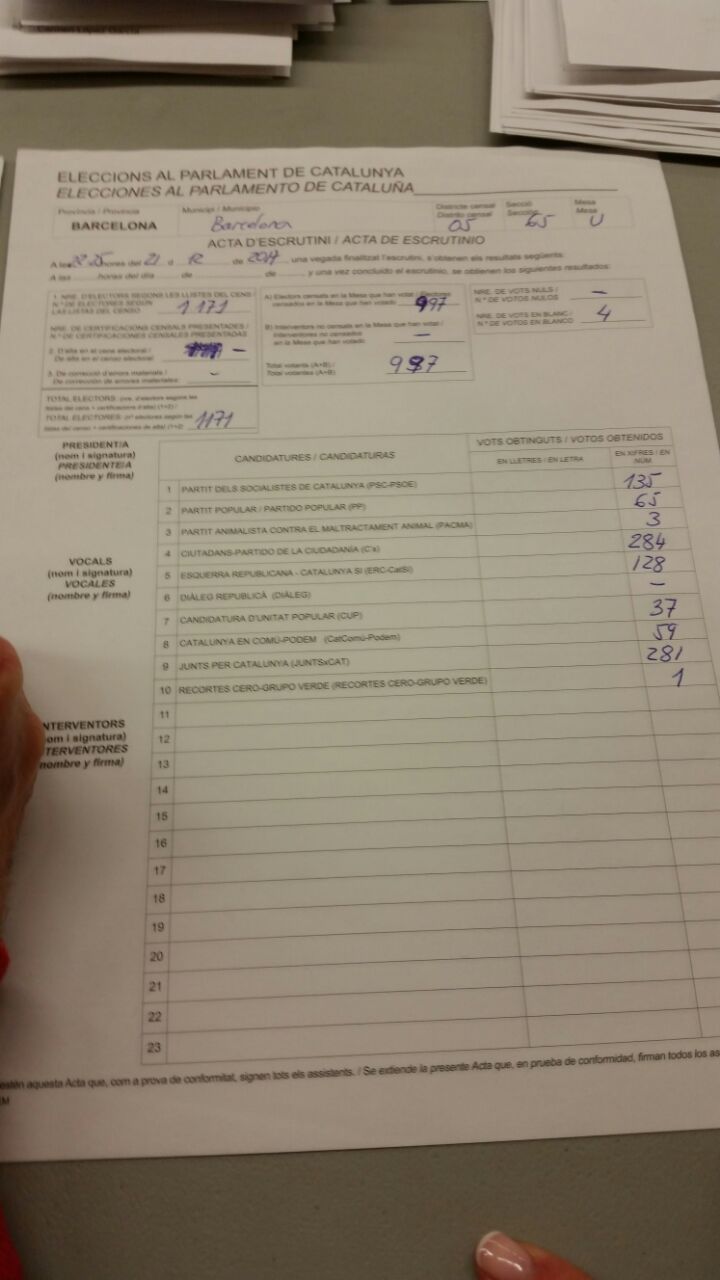 Carmen López García
ELECCIONS AL PARLAMENT DE CATALUNYA
ELECCIONES AL PARLAMENTO DE CATALUÑA
Província / Provincia
BARCELONA
Municipi / Municipio
Barcelona
Districte censal
Distrito censal
05
Secció
Sección
65
Mesa
Mesa
U
ACTA D'ESCRUTINI / ACTA DE ESCRUTINIO
A les 22.25 hores del 21 d 12 de 2017, una vegada finalitzat l'escrutini, s'obtenen els resultats següents:
A las hores del día de de , y una vez concluido el escrutinio, se obtienen los siguientes resultados:
1. NRE. D'ELECTORS SEGONS LES LLISTES DEL CENS /
N.º DE ELECTORES SEGÚN
LAS LISTAS DEL CENSO
1171
NRE. DE CERTIFICACIONS CENSALS PRESENTADES /
N.º DE CERTIFICACIONES CENSALES PRESENTADAS
2. D'alta en el cens electoral /
De alta en el censo electoral: –
3. De correcció d'errors materials /
De corrección de errores materiales: –
TOTAL ELECTORS: (nre. d'electors segons les
llistes del cens + certificacions d'alta) (1+2) /
TOTAL ELECTORES: (nº electores según las
listas del censo + certificaciones de alta) (1+2) 1171
A) Electors censats en la Mesa que han votat / Electores
censados en la Mesa que han votado 997
B) Interventors no censats en la Mesa que han votat /
Interventores no censados
en la Mesa que han votado –
Total votants (A+B) /
Total votantes (A+B)
NRE. DE VOTS NULS /
N.º DE VOTOS NULOS –
NRE. DE VOTS EN BLANC /
N.º DE VOTOS EN BLANCO 4
PRESIDENT/A
(nom i signatura)
PRESIDENTE/A
(nombre y firma)
VOCALS
(nom i signatura)
VOCALES
(nombre y firma)
NTERVENTORS
om i signatura)
TERVENTORES
nombre y firma)
CANDIDATURES / CANDIDATURAS
VOTS OBTINGUTS / VOTOS OBTENIDOS
EN LLETRES / EN LETRA
EN XIFRES / EN
NÚM.
1 PARTIT DELS SOCIALISTES DE CATALUNYA (PSC-PSOE) 135
2 PARTIT POPULAR / PARTIDO POPULAR (PP) 65
3 PARTIT ANIMALISTA CONTRA EL MALTRACTAMENT ANIMAL (PACMA) 3
4 CIUTADANS-PARTIDO DE LA CIUDADANÍA (C's) 284
5 ESQUERRA REPUBLICANA - CATALUNYA SÍ (ERC-CatSí) 128
6 DIÀLEG REPUBLICÀ (DIÀLEG) –
7 CANDIDATURA D'UNITAT POPULAR (CUP) 37
8 CATALUNYA EN COMÚ-PODEM (CatComú-Podem) 59
9 JUNTS PER CATALUNYA (JUNTSxCAT) 281
10 RECORTES CERO-GRUPO VERDE (RECORTES CERO-GRUPO VERDE) 1
11
12
13
14
15
16
17
18
19
20
21
22
23
estén aquesta Acta que, com a prova de conformitat, signen tots els assistents. / Se extiende la presente Acta que, en prueba de conformidad, firman todos los as